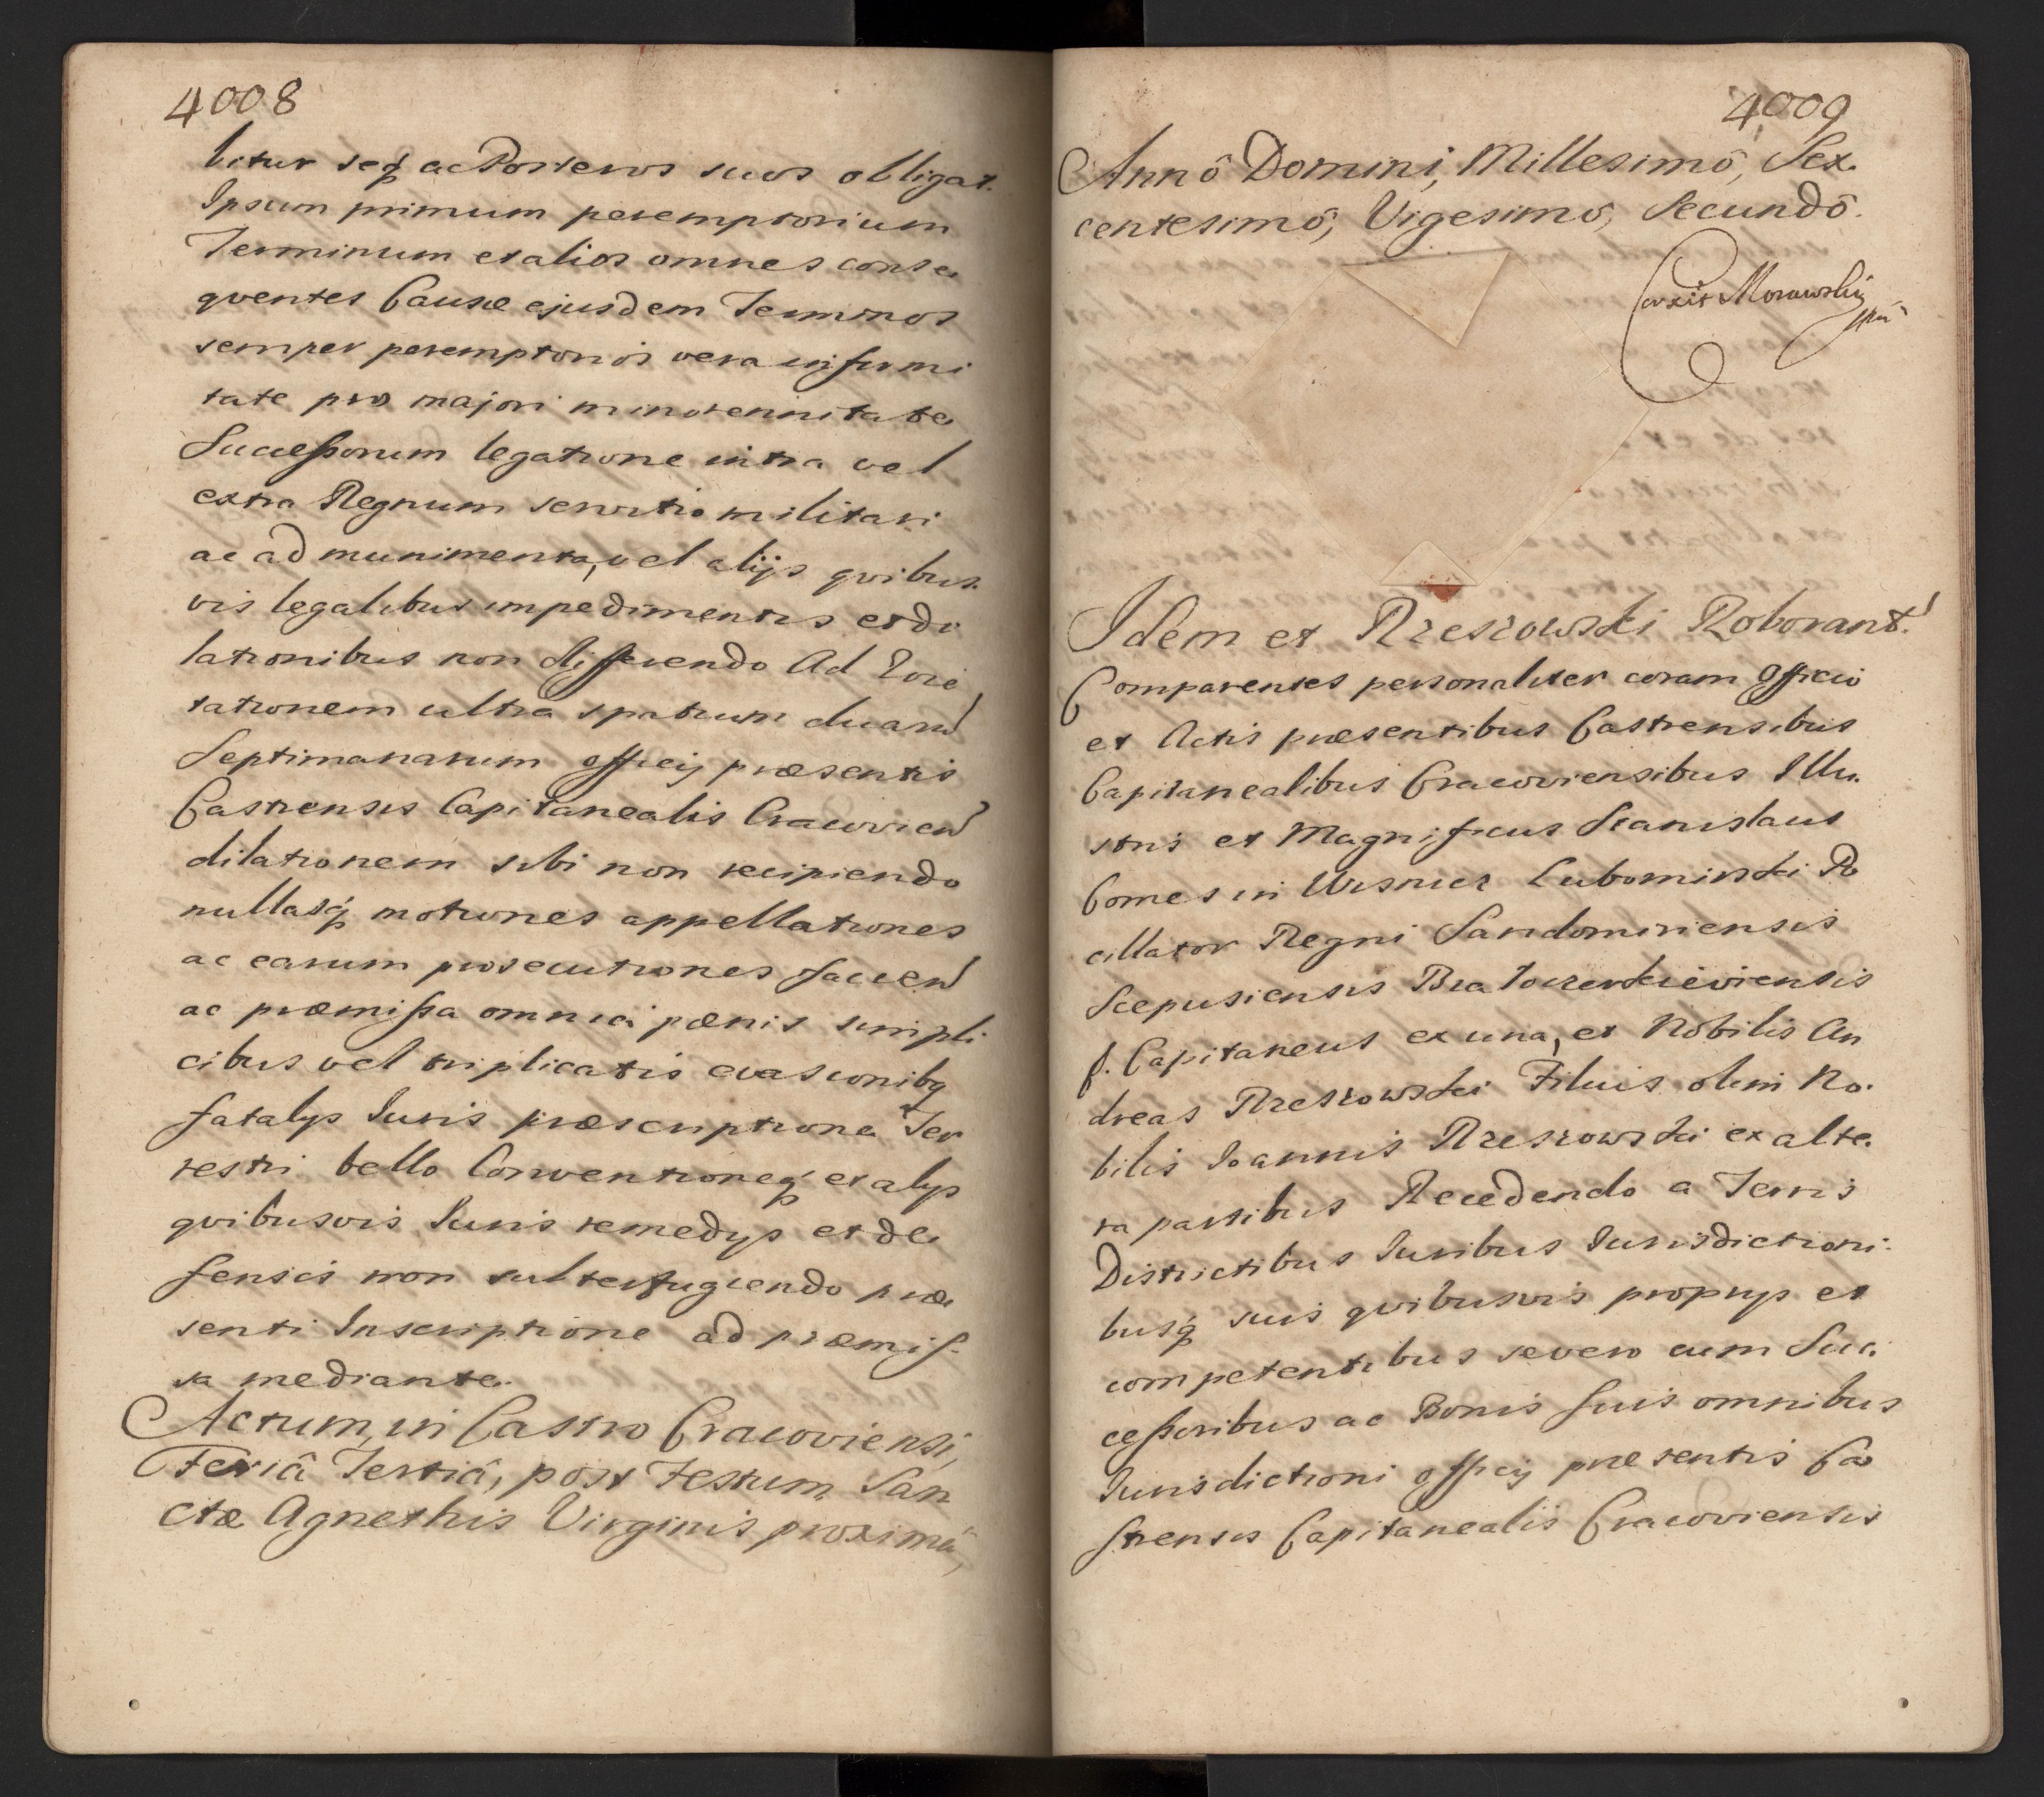 4008
bitur seq₃ ac Posteros suos obligat.
Ipsum primum peremptorium
Terminum et alios omnes conse
qventes Causæ ejusdem Terminos
semper peremptorios vera infirmi
tate pro majori minorennitate
Successorum legatione intra vel
extra Regnum servitio militari
ac ad munimenta, vel alijs qvibus.
vis legalibus impedimentis et di
lationibus non differendo Ad
tationem ultra spatium duarū
Septimanarum officij præsentis
Castrensis Capitanealis Cracovien
dilationem sibi non recipiendo
nullasq₃ motiones appellationes
ac earum prosecutiones facien
ac præmissa omnia pænis simpli
cibus vel triplicatis evasionibq
fatalijs Iuris præscriptione Ter
restri bello Conventioneq₃ et alijs
qvibusvis Iuris remedijs et de
fensis non subterfugiendo præ
senti Inscriptione ad præmis-
sa mediante.
Actum, in Castro Cracoviensi,
Feriâ Tertiâ, post Festum San
ctæ Agnethis Virginis proximâ,
4009
Annô Domini, Millesimô, Sex.
centesimô, Vigesimô, Secundô.
Morawski
mpa
Idem et Rzeszowski Roborant.
Comparentes personaliter coram Officio
et Actis præsentibus Castrensibus
Capitanealibus Cracoviensibus Illu.
stris et Magnificus Stanislaus
Comes in Wisnicz Lubomirski Po
cillator Regni Sandomiriensis
Scepusiensis
f. Capitaneus ex una, et Nobilis An
dreas Rzeszowski Filius olim No.
bilis Joannis Rzeszowski ex alte.
ra partibus Recedendo a Terris
Districtibus Iuribus Iurisdictioni.
busq₃ suis qvibusvis proprijs et
competentibus severo cum Suc.
cessoribus ac Bonis suis omnibus
Iurisdictioni officij præsentis Ca
strensis Capitanealis Cracoviensis